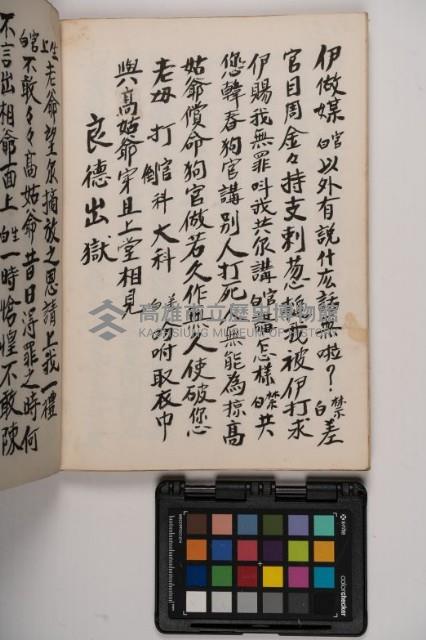 伊做媒官白以外有說什広話無啦？禁白差
官目周金々持支刺葱棍我被伊打求
伊賜我無罪叫我共尔講官白講怎樣禁白共
您韓春狗官講別人打死無能為掠高
姑爺償命狗官做若久作恩人使破您
老母打倒官科大科 白 吩咐取衣巾
與高姑爺穿且上堂相見
良德出獄
生上老爺望尔搞放之恩請上我一禮
官白不敢々々高姑爺昔日得罪之時何
不言出相爺一面上生白一時恰惶不敢陳
高雄市立歷史博物館
KAOHSIUNG MUSEUM OF HISTORY
x-rite
colorchecker